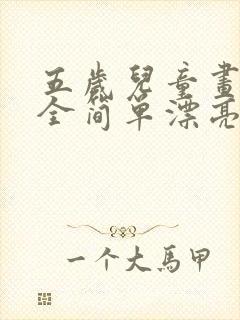 五歲兒童畫
全简单漂亮
一个大馬甲